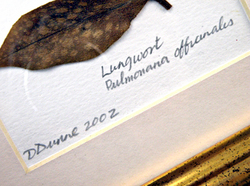 Lungwort
Pulmonaria officinalis
DDunne 2002